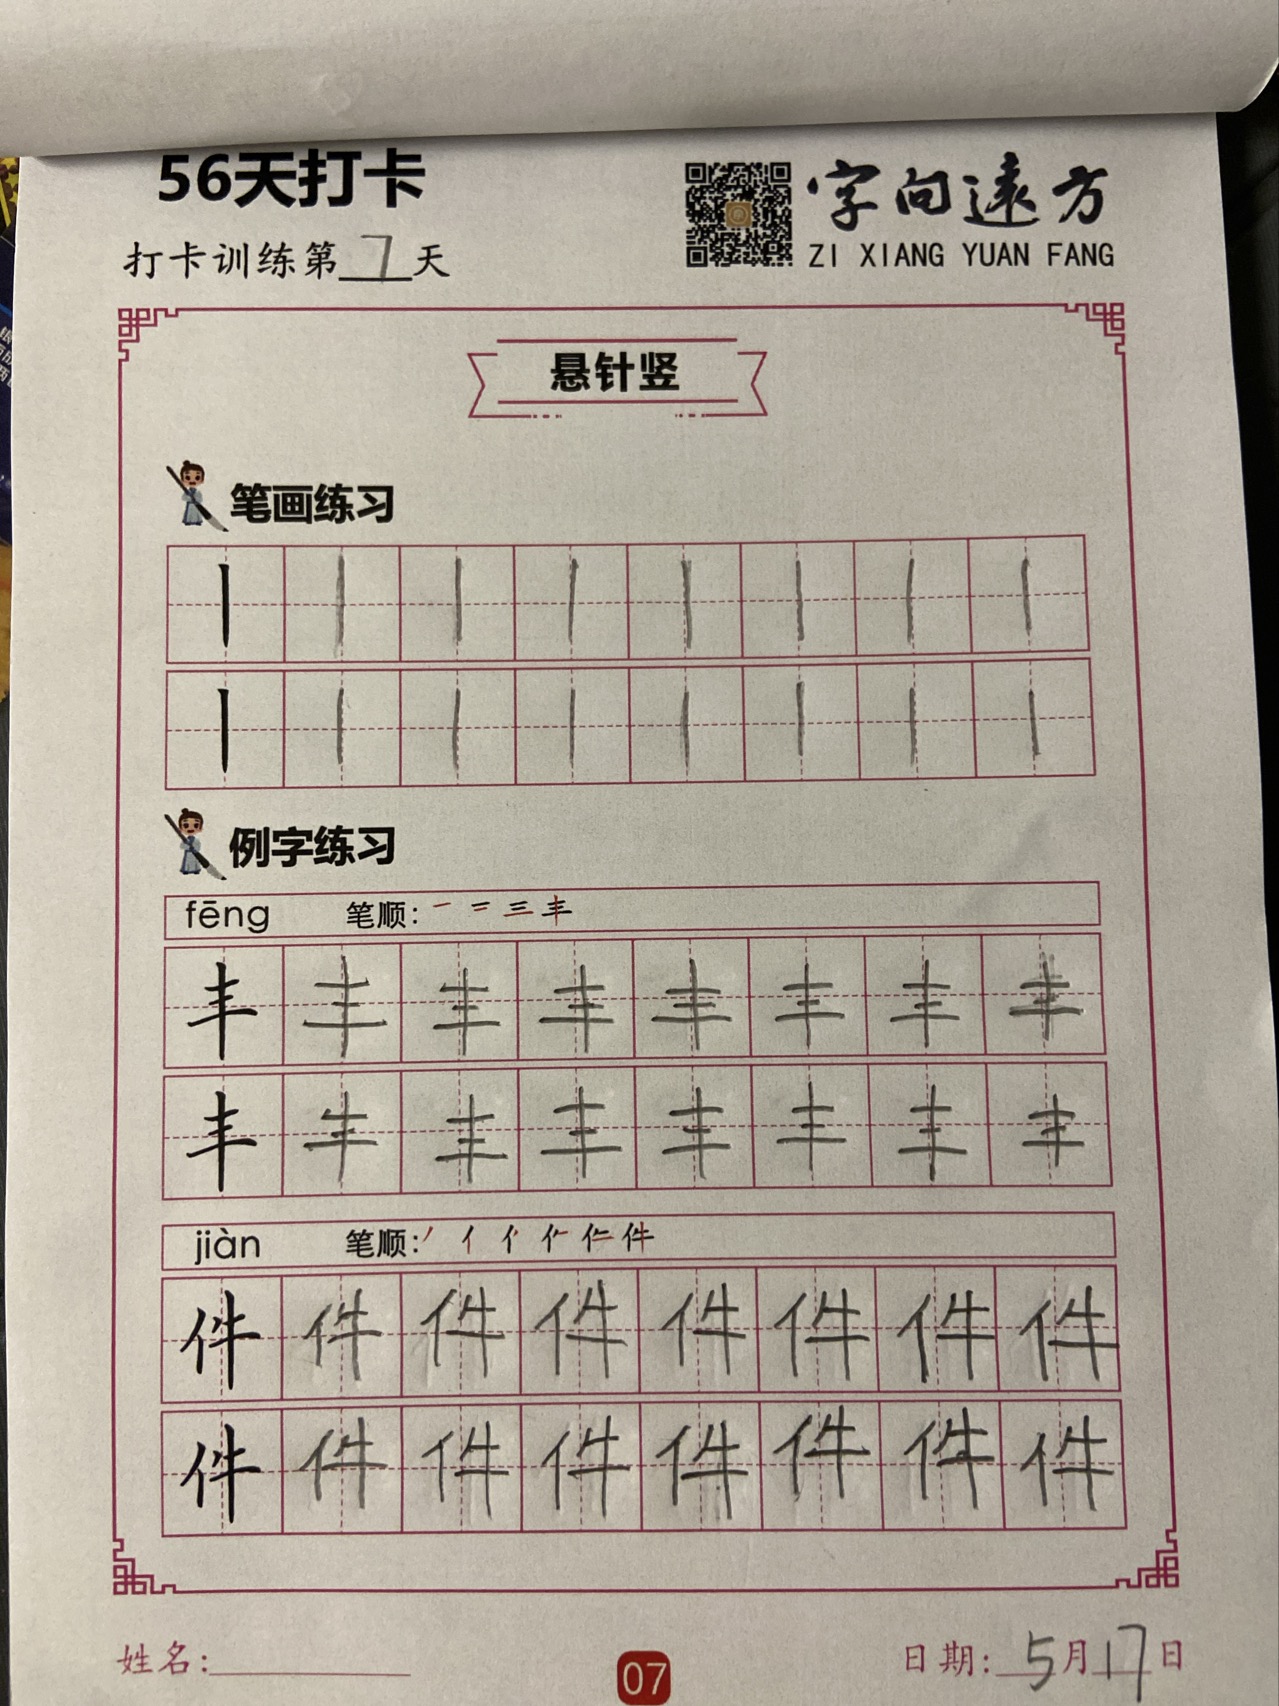 56天打卡
字向遠方
ZI XIANG YUAN FANG
打卡训练第7天
悬针竖
笔画练习
丨丨丨丨丨丨丨丨
丨丨丨丨丨丨丨丨
例字练习
fēng 笔顺: 一 二 三 丰
丰丰丰丰丰丰丰丰
丰丰丰丰丰丰丰丰
jiàn 笔顺: 件
件件件件件件件件
件件件件件件件件
姓名:
07
日期: 5月17日